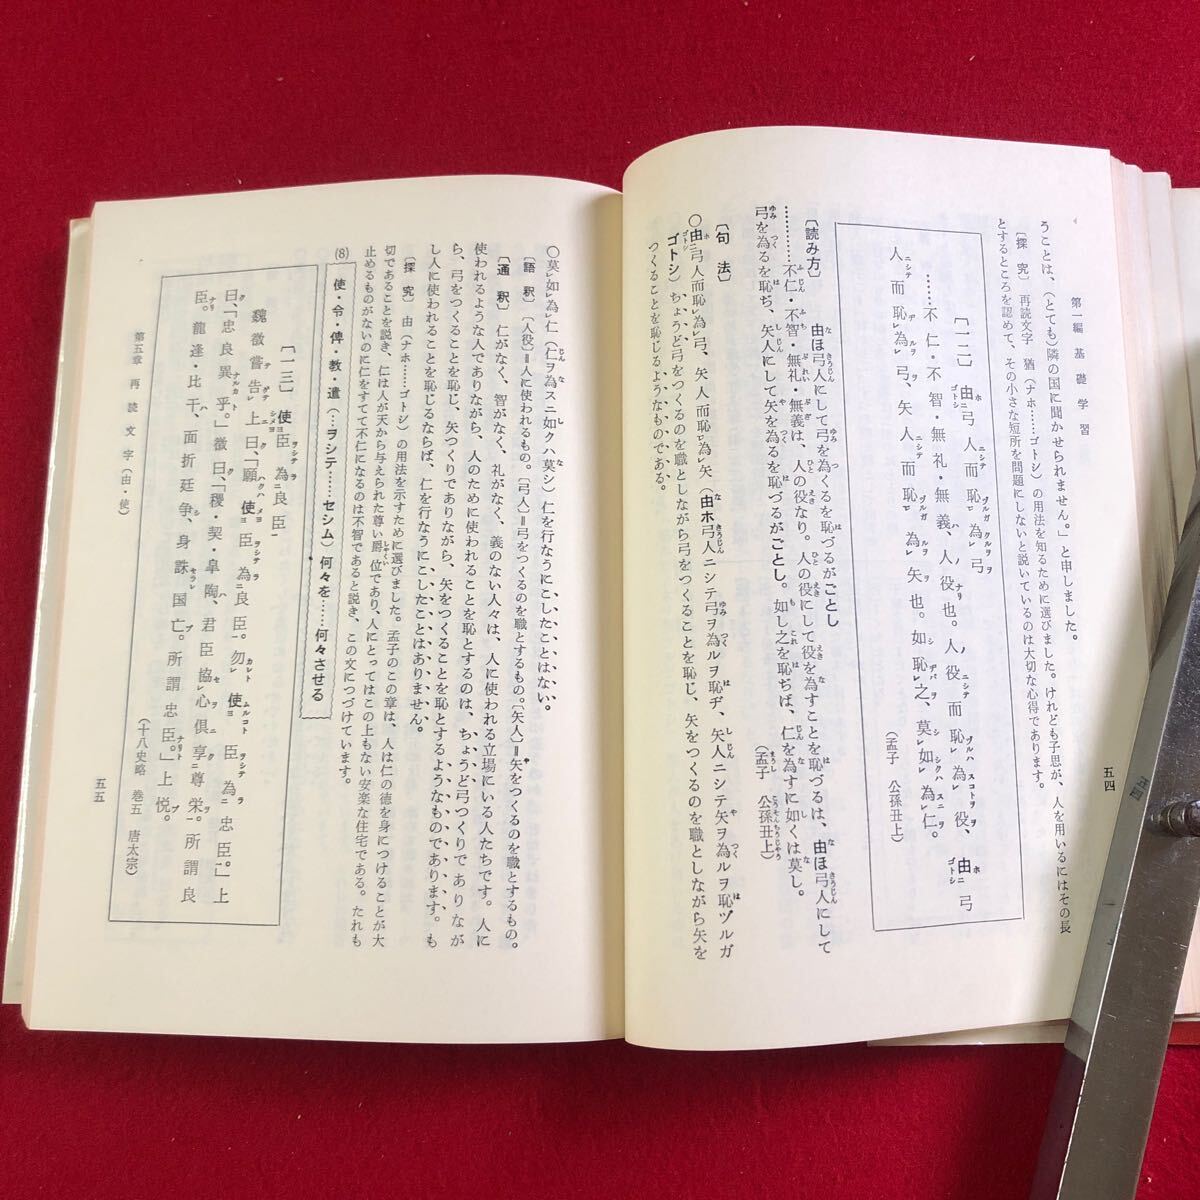 第一編 基礎学習
五四
うことは、(とても)隣の国に聞かせられません。」と申しました。
〔探究〕 再読文字 猶(ナホ……ゴトシ)の用法を知るために選びました。けれども子思が、人を用いるにはその長
とするところを認めて、その小さな短所を問題にしないと説いているのは大切な心得であります。
〔一二〕 由ホ弓人ニシテ而恥ヅルガ為レ弓ゴトシ
………不仁・不智・無礼・無義、人ノ役ナリ也。人ノ役ニシテ而恥ヅルハ為レ役、由ホ弓
人ニシテ而恥ヂ為レ弓、矢人ニシテ而恥ヅルガ為レ矢也。如シ恥ヂバ之、莫レ如レ為レ仁。
(孟子 公孫丑上)
〔読み方〕 由ほ弓人にして弓を為くるを恥づるがごとし
………不仁・不智・無礼・無義は、人の役なり。人の役にして役を為すことを恥づるは、由ほ弓人にして
弓を為るを恥ぢ、矢人にして矢を為るを恥づるがごとし。如し之を恥ぢば、仁を為すに如くは莫し。
(孟子 公孫丑上)
〔句法〕
○由弓人而恥レ為レ弓、矢人而恥レ為レ矢(由ホ弓人ニシテ弓ヲ為ルヲ恥ヂ、矢人ニシテ矢ヲ為ルヲ恥ヅルガ
ゴトシ)ちょうど弓をつくるのを職としながら弓をつくることを恥じ、矢をつくるのを職としながら矢を
つくることを恥じるようなものである。
○莫レ如レ為レ仁(仁ヲ為スニ如クハ莫シ)仁を行なうにこしたことはない。
〔語釈〕〔人役〕=人に使われるもの。〔弓人〕=弓をつくるのを職とするもの。〔矢人〕=矢をつくるのを職とするもの。
〔通釈〕 仁がなく、智がなく、礼がなく、義のない人々は、人に使われる立場にいる人たちです。人に
使われるような人でありながら、人のために使われることを恥とするのは、ちょうど弓つくりでありなが
ら、弓をつくることを恥じ、矢つくりでありながら、矢をつくることを恥とするようなものであります。も
し人に使われることを恥じるならば、仁を行なうにこしたことはありません。
〔探究〕 由(ナホ……ゴトシ)の用法を示すために選びました。孟子のこの章は、人は仁の徳を身につけることが大
切であることを説き、仁は人が天から与えられた尊い爵位であり、人にとってはこの上もない安楽な住宅である。たれも
止めるものがないのに仁をすてて不仁になるのは不智であると説き、この文につづけています。
(8) 使・令・俾・教・遣(…ヲシテ……セシム)何々を……何々させる
〔一三〕 使ニ臣為ニ良臣一
魏徴嘗テ告ゲテ上ニ曰ク、「願ハクハ使ニ臣ヲシテ為ニ良臣一。勿レ使ニ臣ヲシテ為ニ忠臣一。」上
曰ク、「忠良異ナルカト乎。」徴曰ク、「稷・契・皐陶ハ、君臣協レ心、倶ニ享ニ尊栄一。所謂良
臣ナリ。龍逢・比干ハ、面折廷争シ、身誅セラレ国亡ブ。所謂忠臣ナリト。」上悦ブ。
(十八史略 巻五 唐太宗)
第五章 再読文字(由・使)
五五